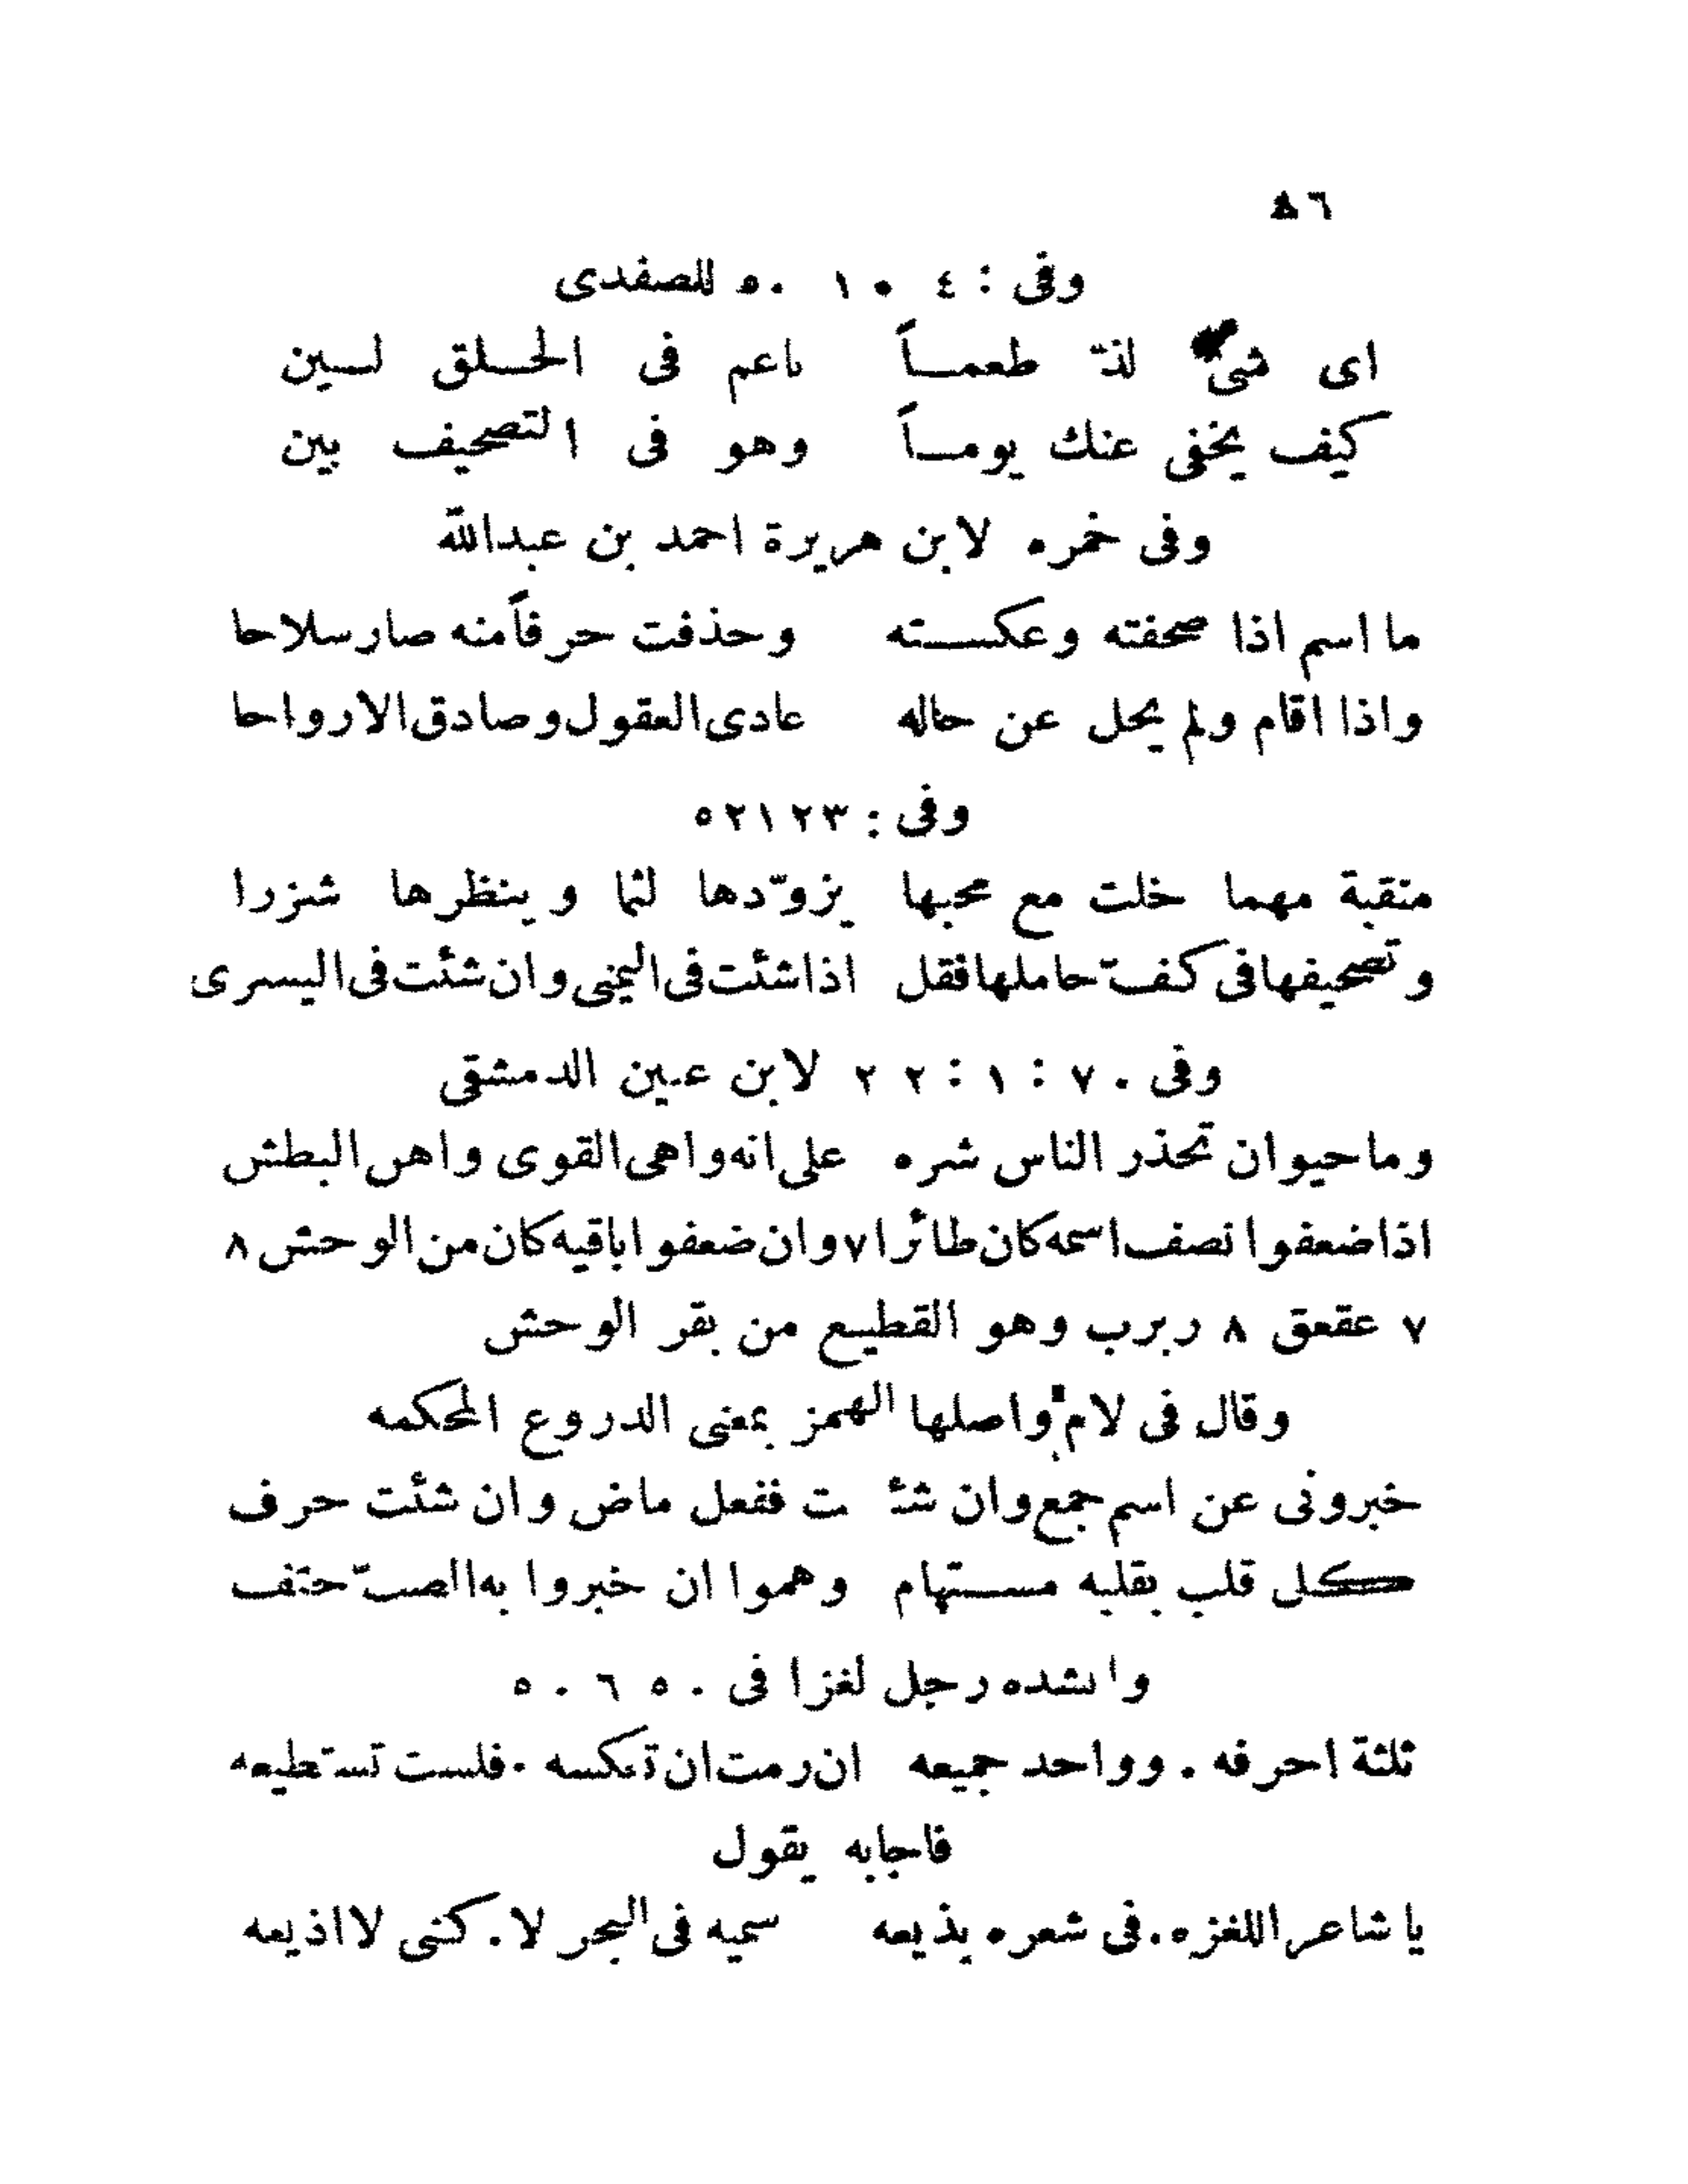 ٨٦
وفى : ٤ ٠ ١ ٥٠ للصفدى
اى شىء لذّ طعمــاً ناعم فى الحــلق لــين
كيف يخفى عنك يومــاً وهو فى التصحيف بين
وفى خمره لابن هريرة احمد بن عبدالله
ما اسم اذا صحفته وعكســته وحذفت حرفاً منه صار سلاحا
واذا اقام ولم يحل عن حاله عادى العقول وصادق الارواحا
وفى : ٥٢١٢٣
منقبة مهما خلت مع محبها يزوّدها لثما وينظرها شزرا
وتصحيفها فى كفّ حاملها فقل اذا شئت فى اليمنى وان شئت فى اليسرى
وفى ٧٠ : ١ : ٢ ٢ لابن عين الدمشقى
وما حيوان تحذر الناس شره على انه واهى القوى واهن البطش
اذا ضعفوا نصف اسمه كان طائرا ٧ وان ضعفوا باقيه كان من الوحش ٨
٧ عقعق ٨ ربرب وهو القطيع من بقر الوحش
وقال فى لام واصلها الهمز بمعنى الدروع المحكمه
خبرونى عن اسم جمع وان شئـ ـت ففعل ماض وان شئت حرف
كل قلب بقلبه مســتهام وهموا ان خبروا به الصبّ حتف
وانشده رجل لغزا فى ٠ ٥ ٦ ٠ ٥
ثلثة احرفه . وواحد جميعه ان رمت ان تعكسه . فلست تستطيعه
فاجابه يقول
يا شاعر اللغزه . فى شعره يذيعه سميه فى البحر لا . كنى لا اذيعه